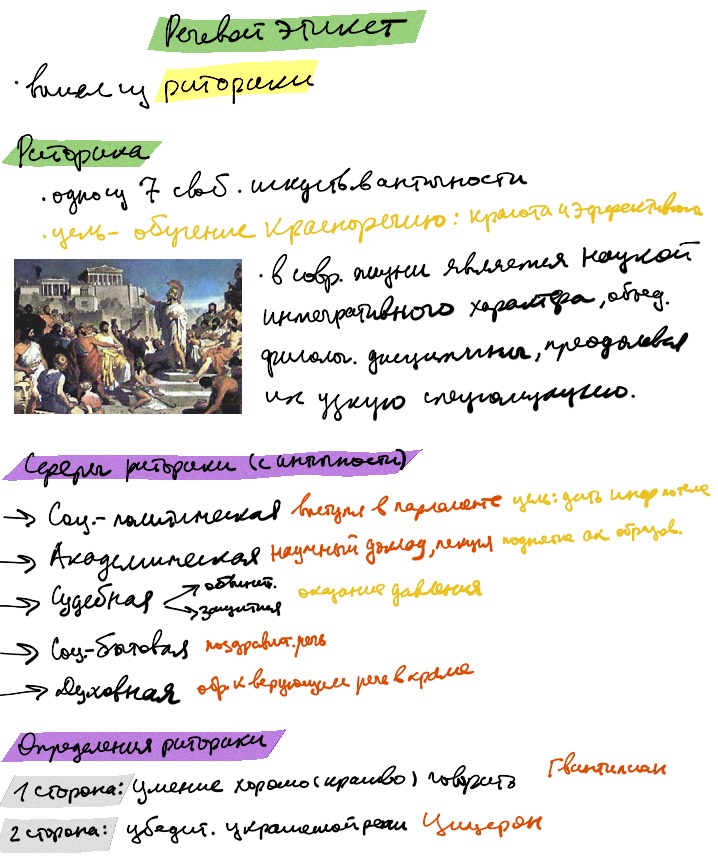 Речевой этикет
· вышел из риторики
Риторика
· одно из 7 своб. искуств в античности
· цель - обучение красноречию: красота и эффективность
· в совр. жизни является наукой
интегративного характера, объед.
филолог. дисциплины, преодолевая
их узкую специализацию.
Сферы риторики (с античности)
→ Соц.-политическая выступл в парламенте цель: дать инф о теме
→ Академическая научный доклад, лекция поднятие ак образов.
→ Судебная обвинит. защитная оказание давления
→ Соц.-бытовая поздравит. речь
→ Духовная обр. к верующим речь в храме
Определения риторики
1 сторона: умение хорошо (красиво) говорить Квинтилиан
2 сторона: убедит. украшеной речи Цицерон